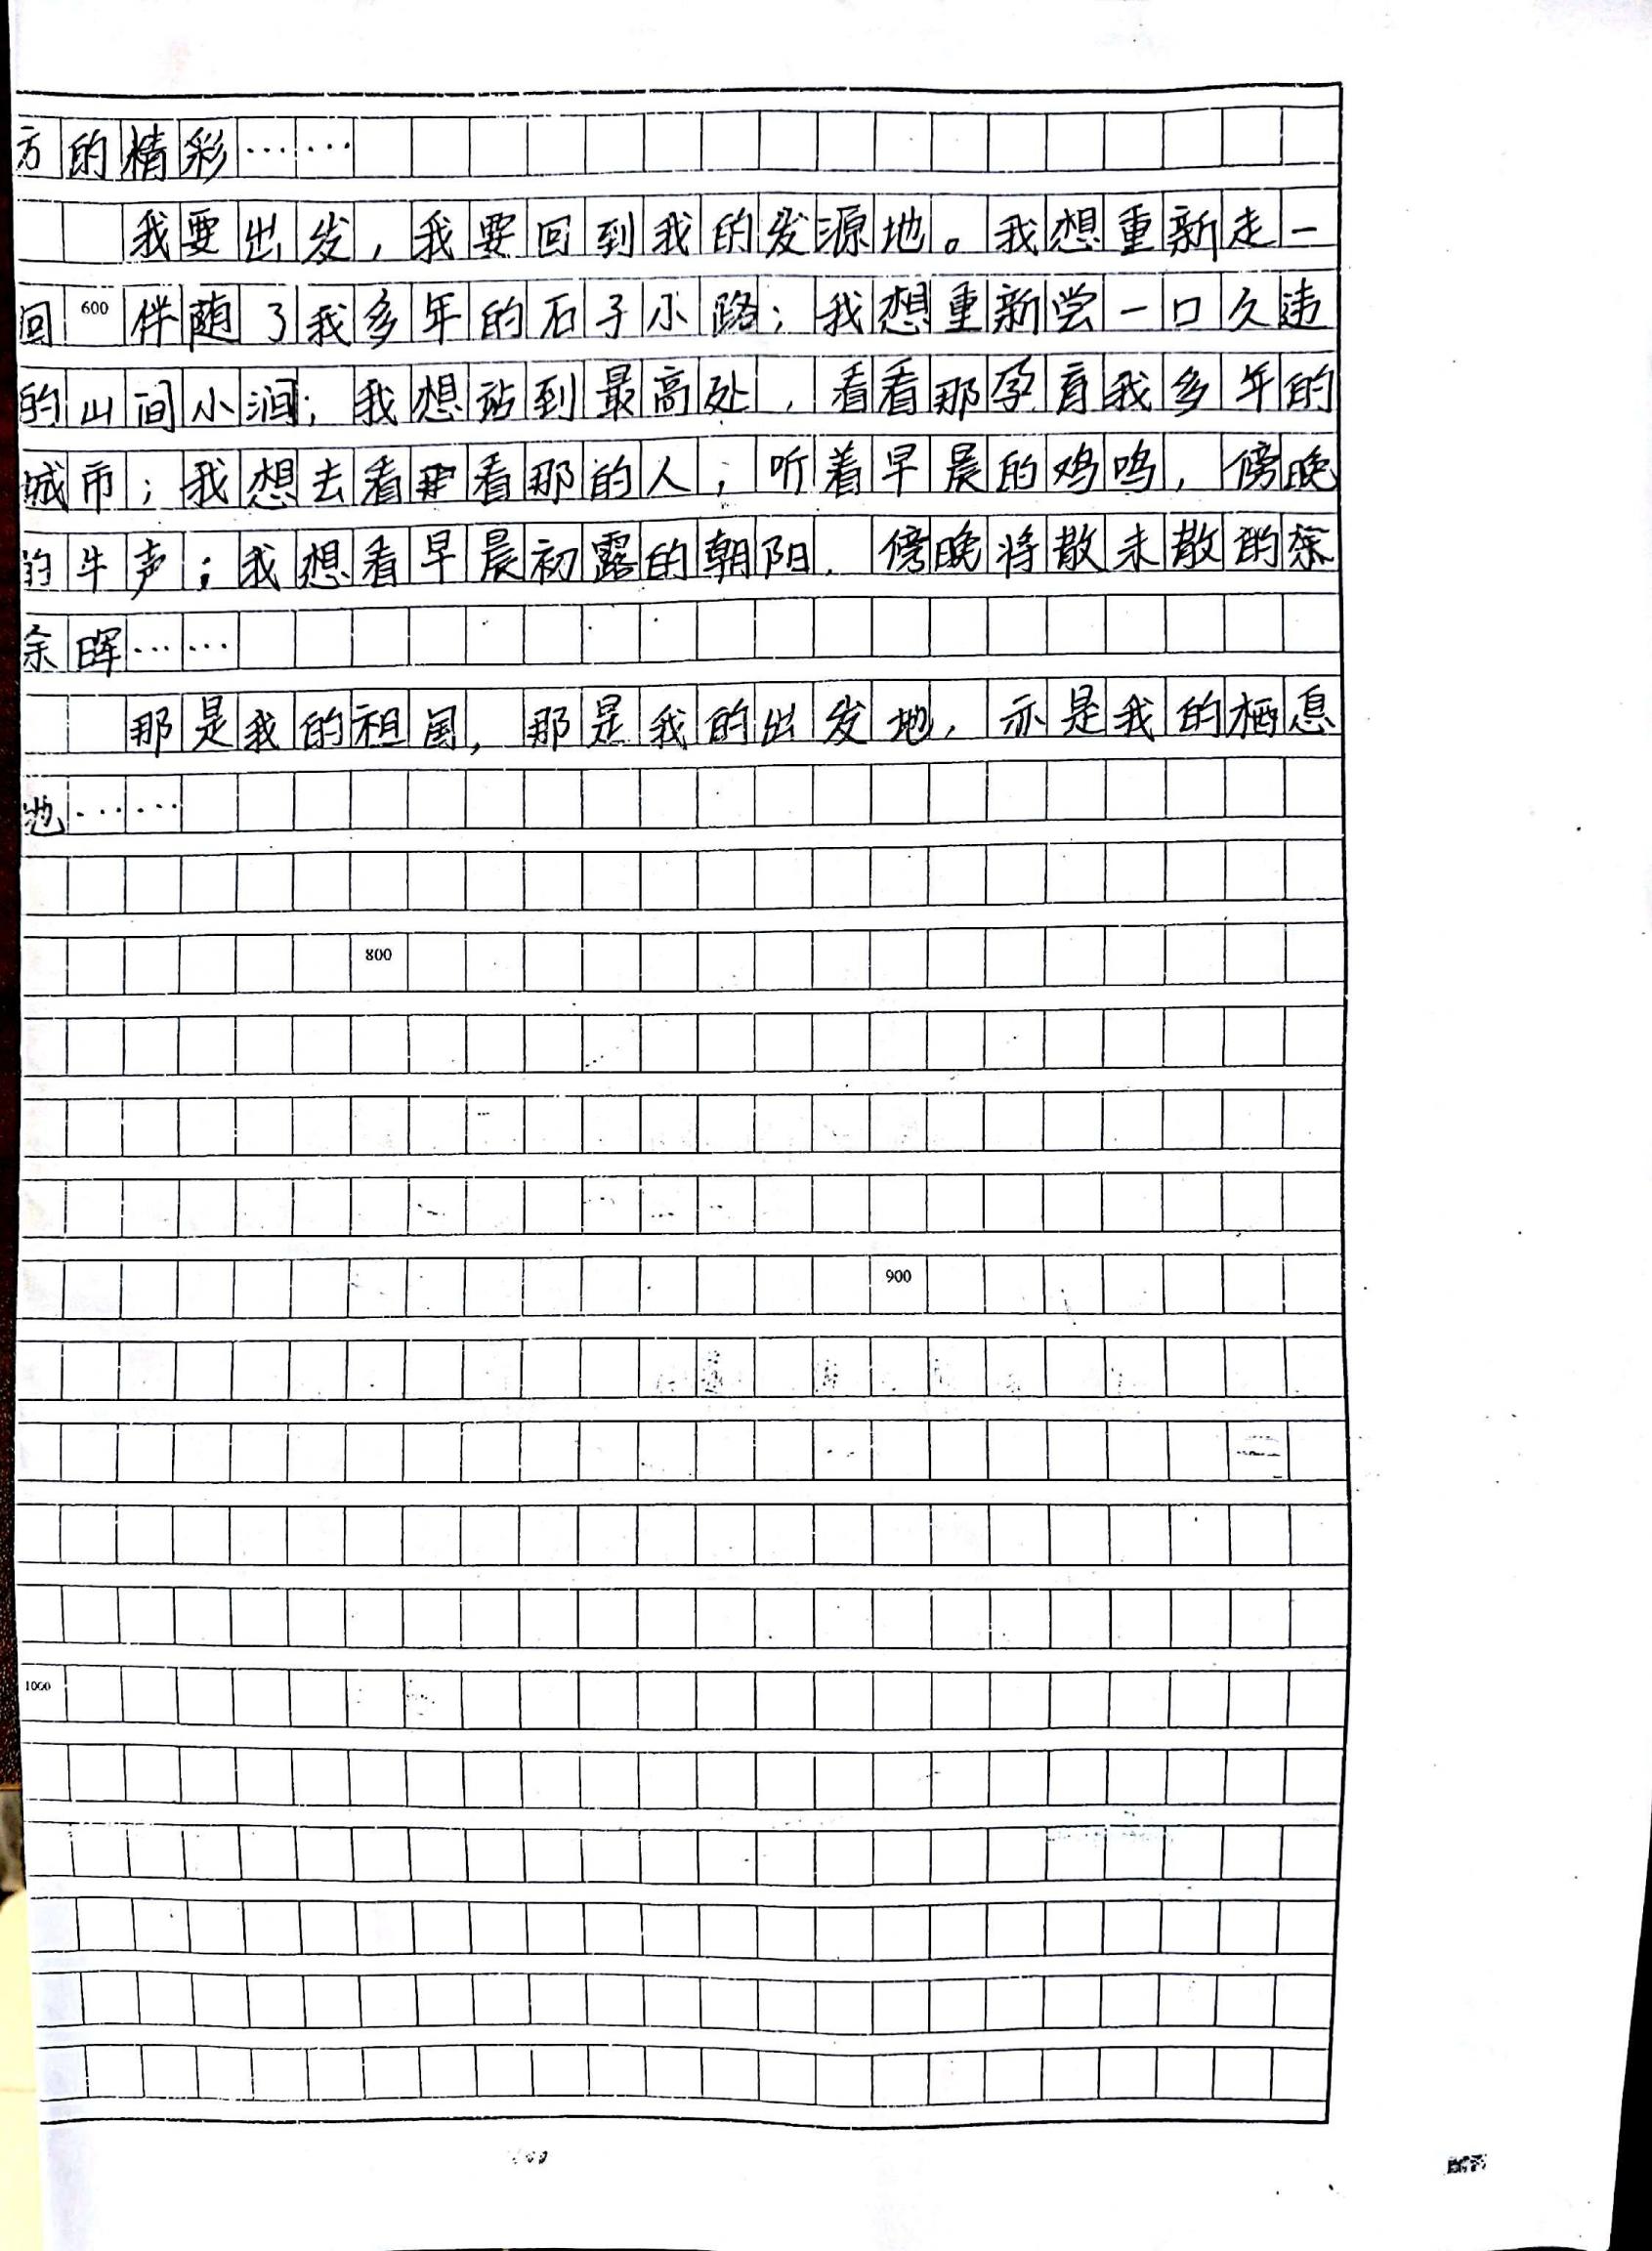 方的精彩……
我要出发，我要回到我的发源地。我想重新走一
回 600 伴随了我多年的石子小路；我想重新尝一口久违
的山间小涧；我想站到最高处，看看那孕育我多年的
城市；我想去看看那的人；听着早晨的鸡鸣，傍晚
的牛声；我想看早晨初露的朝阳，傍晚将散未散的
余晖……
那是我的祖国，那是我的出发地，亦是我的栖息
地……
800
900
1000